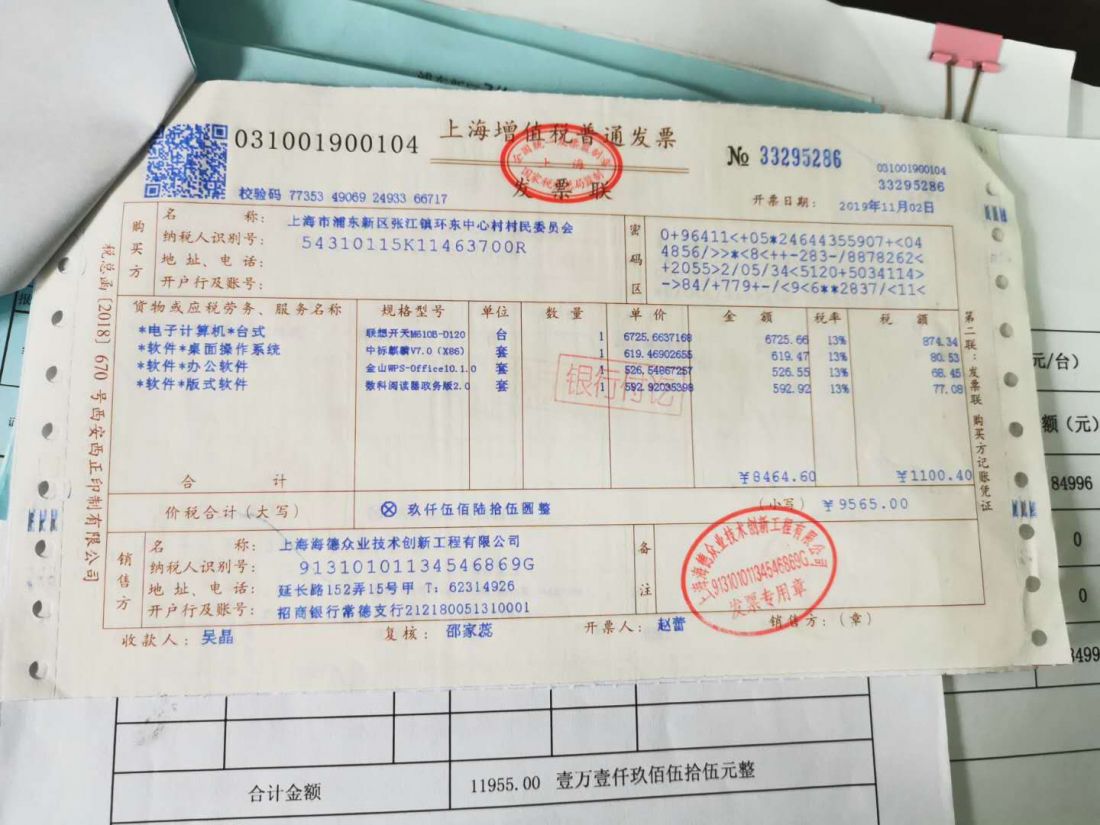 031001900104
上海增值税普通发票
发票联
全国统一发票监制章
上海
国家税务总局监制
№ 33295286
031001900104
33295286
校验码 77353 49069 24933 66717
开票日期: 2019年11月02日
购买方
名 称: 上海市浦东新区张江镇环东中心村村民委员会
纳税人识别号: 54310115K11463700R
地 址、电 话:
开户行及账号:
密码区
0+96411<+05*24644355907+<04
4856/>>*<8<++-283-/8878262<
+2055>2/05/34<5120+5034114>
->84/+779+-/<9<6**2837/<11<
货物或应税劳务、服务名称 规格型号 单位 数 量 单 价 金 额 税率 税 额
*电子计算机*台式 联想开天M610B-D120 台 1 6725.6637168 6725.66 13% 874.34
*软件*桌面操作系统 中标麒麟V7.0 (X86) 套 1 619.46902655 619.47 13% 80.53
*软件*办公软件 金山WPS-Office10.1.0 套 1 526.54867257 526.55 13% 68.45
*软件*版式软件 数科阅读器政务版2.0 套 1 592.92035398 592.92 13% 77.08
银行付讫
合 计 ¥8464.60 ¥1100.40
价税合计(大写) ⊗ 玖仟伍佰陆拾伍圆整 (小写) ¥9565.00
销售方
名 称: 上海海德众业技术创新工程有限公司
纳税人识别号: 91310101134546869G
地 址、电 话: 延长路152弄15号甲 T: 62314926
开户行及账号: 招商银行常德支行212180051310001
备注
上海海德众业技术创新工程有限公司
91310101134546869G
发票专用章
收款人: 吴晶 复核: 邵家蕊 开票人: 赵蕾 销售方:(章)
税总函〔2018〕670号西安西正印制有限公司
第二联:发票联 购买方记账凭证
元/台)
额(元)
84996
0
0
合计金额 11955.00 壹万壹仟玖佰伍拾伍元整